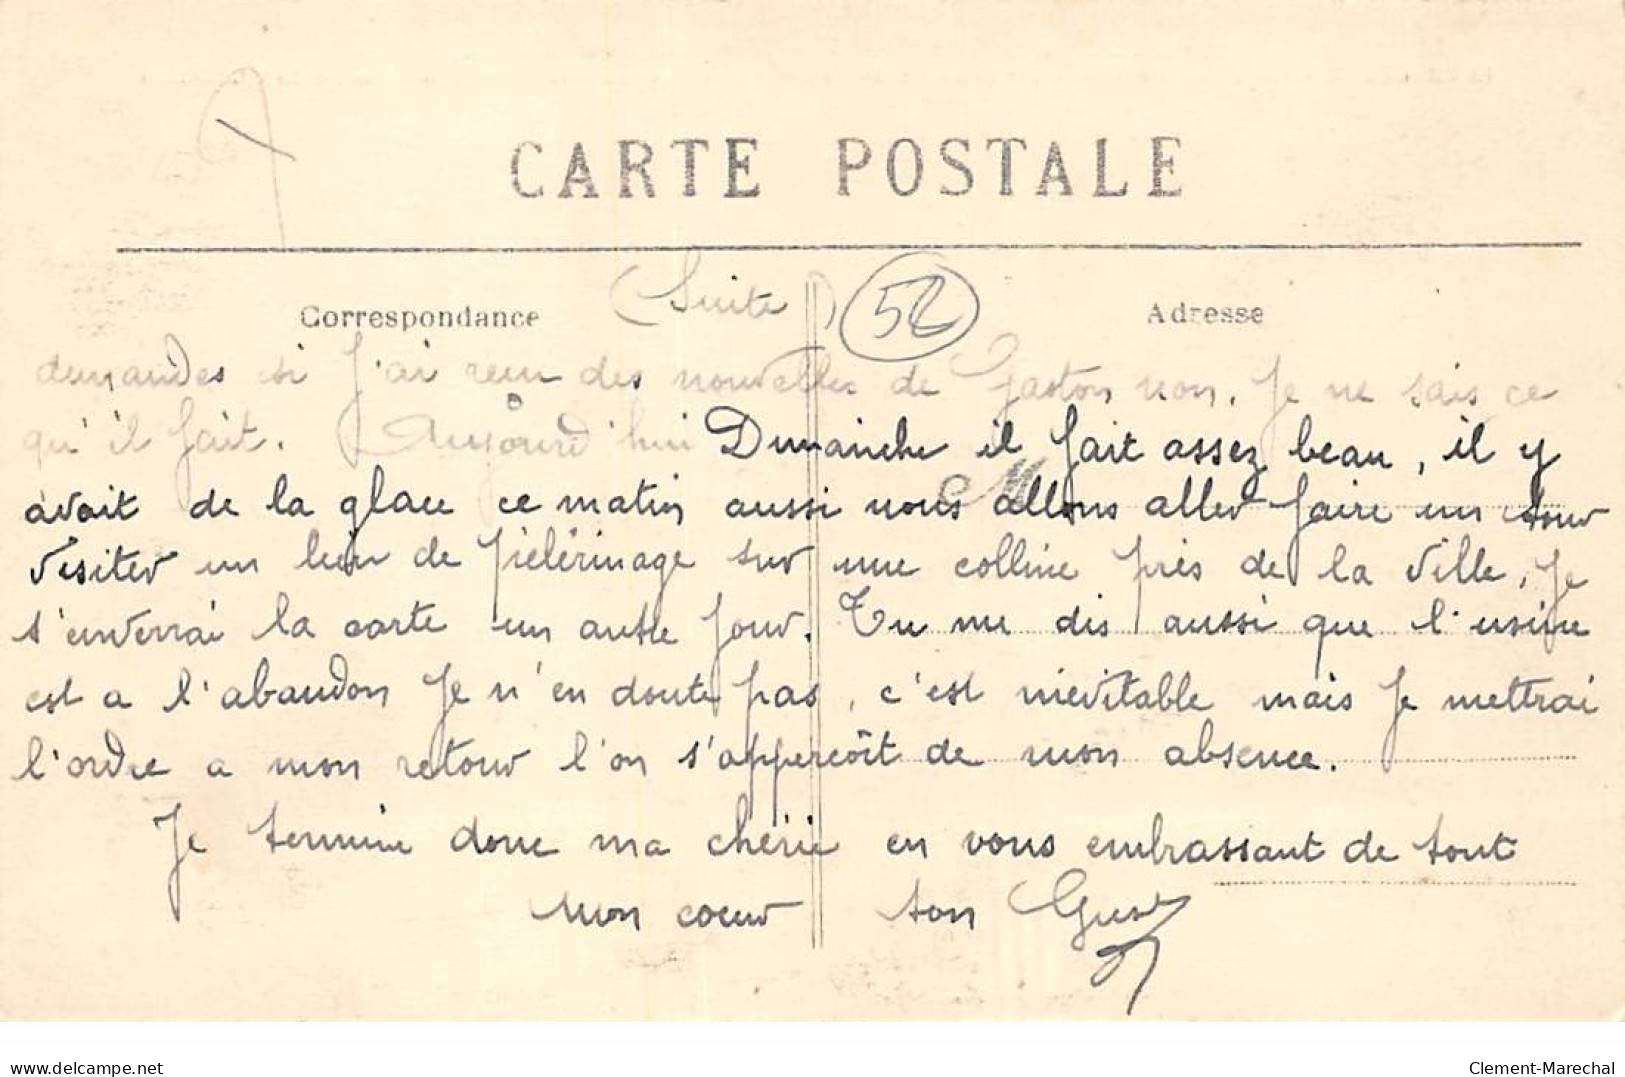 CARTE POSTALE
Correspondance
(Suite)
52
Adresse
demandes si j'ai reçu des nouvelles de Gaston non. Je ne sais ce
qu'il fait. Aujourd'hui Dimanche il fait assez beau, il y
avait de la glace ce matin aussi nous allons aller faire un tour
visiter un lieu de pielérinage sur une colline près de la ville, je
t'enverrai la carte un autre jour. Tu me dis aussi que l'usine
est a l'abandon je n'en doute pas, c'est inévitable mais je mettrai
l'ordre a mon retour l'on s'apperçoit de mon absence.
Je termine donc ma chérie en vous embrassant de tout
mon coeur ton Gust
delcampe.net
Clement-Marechal